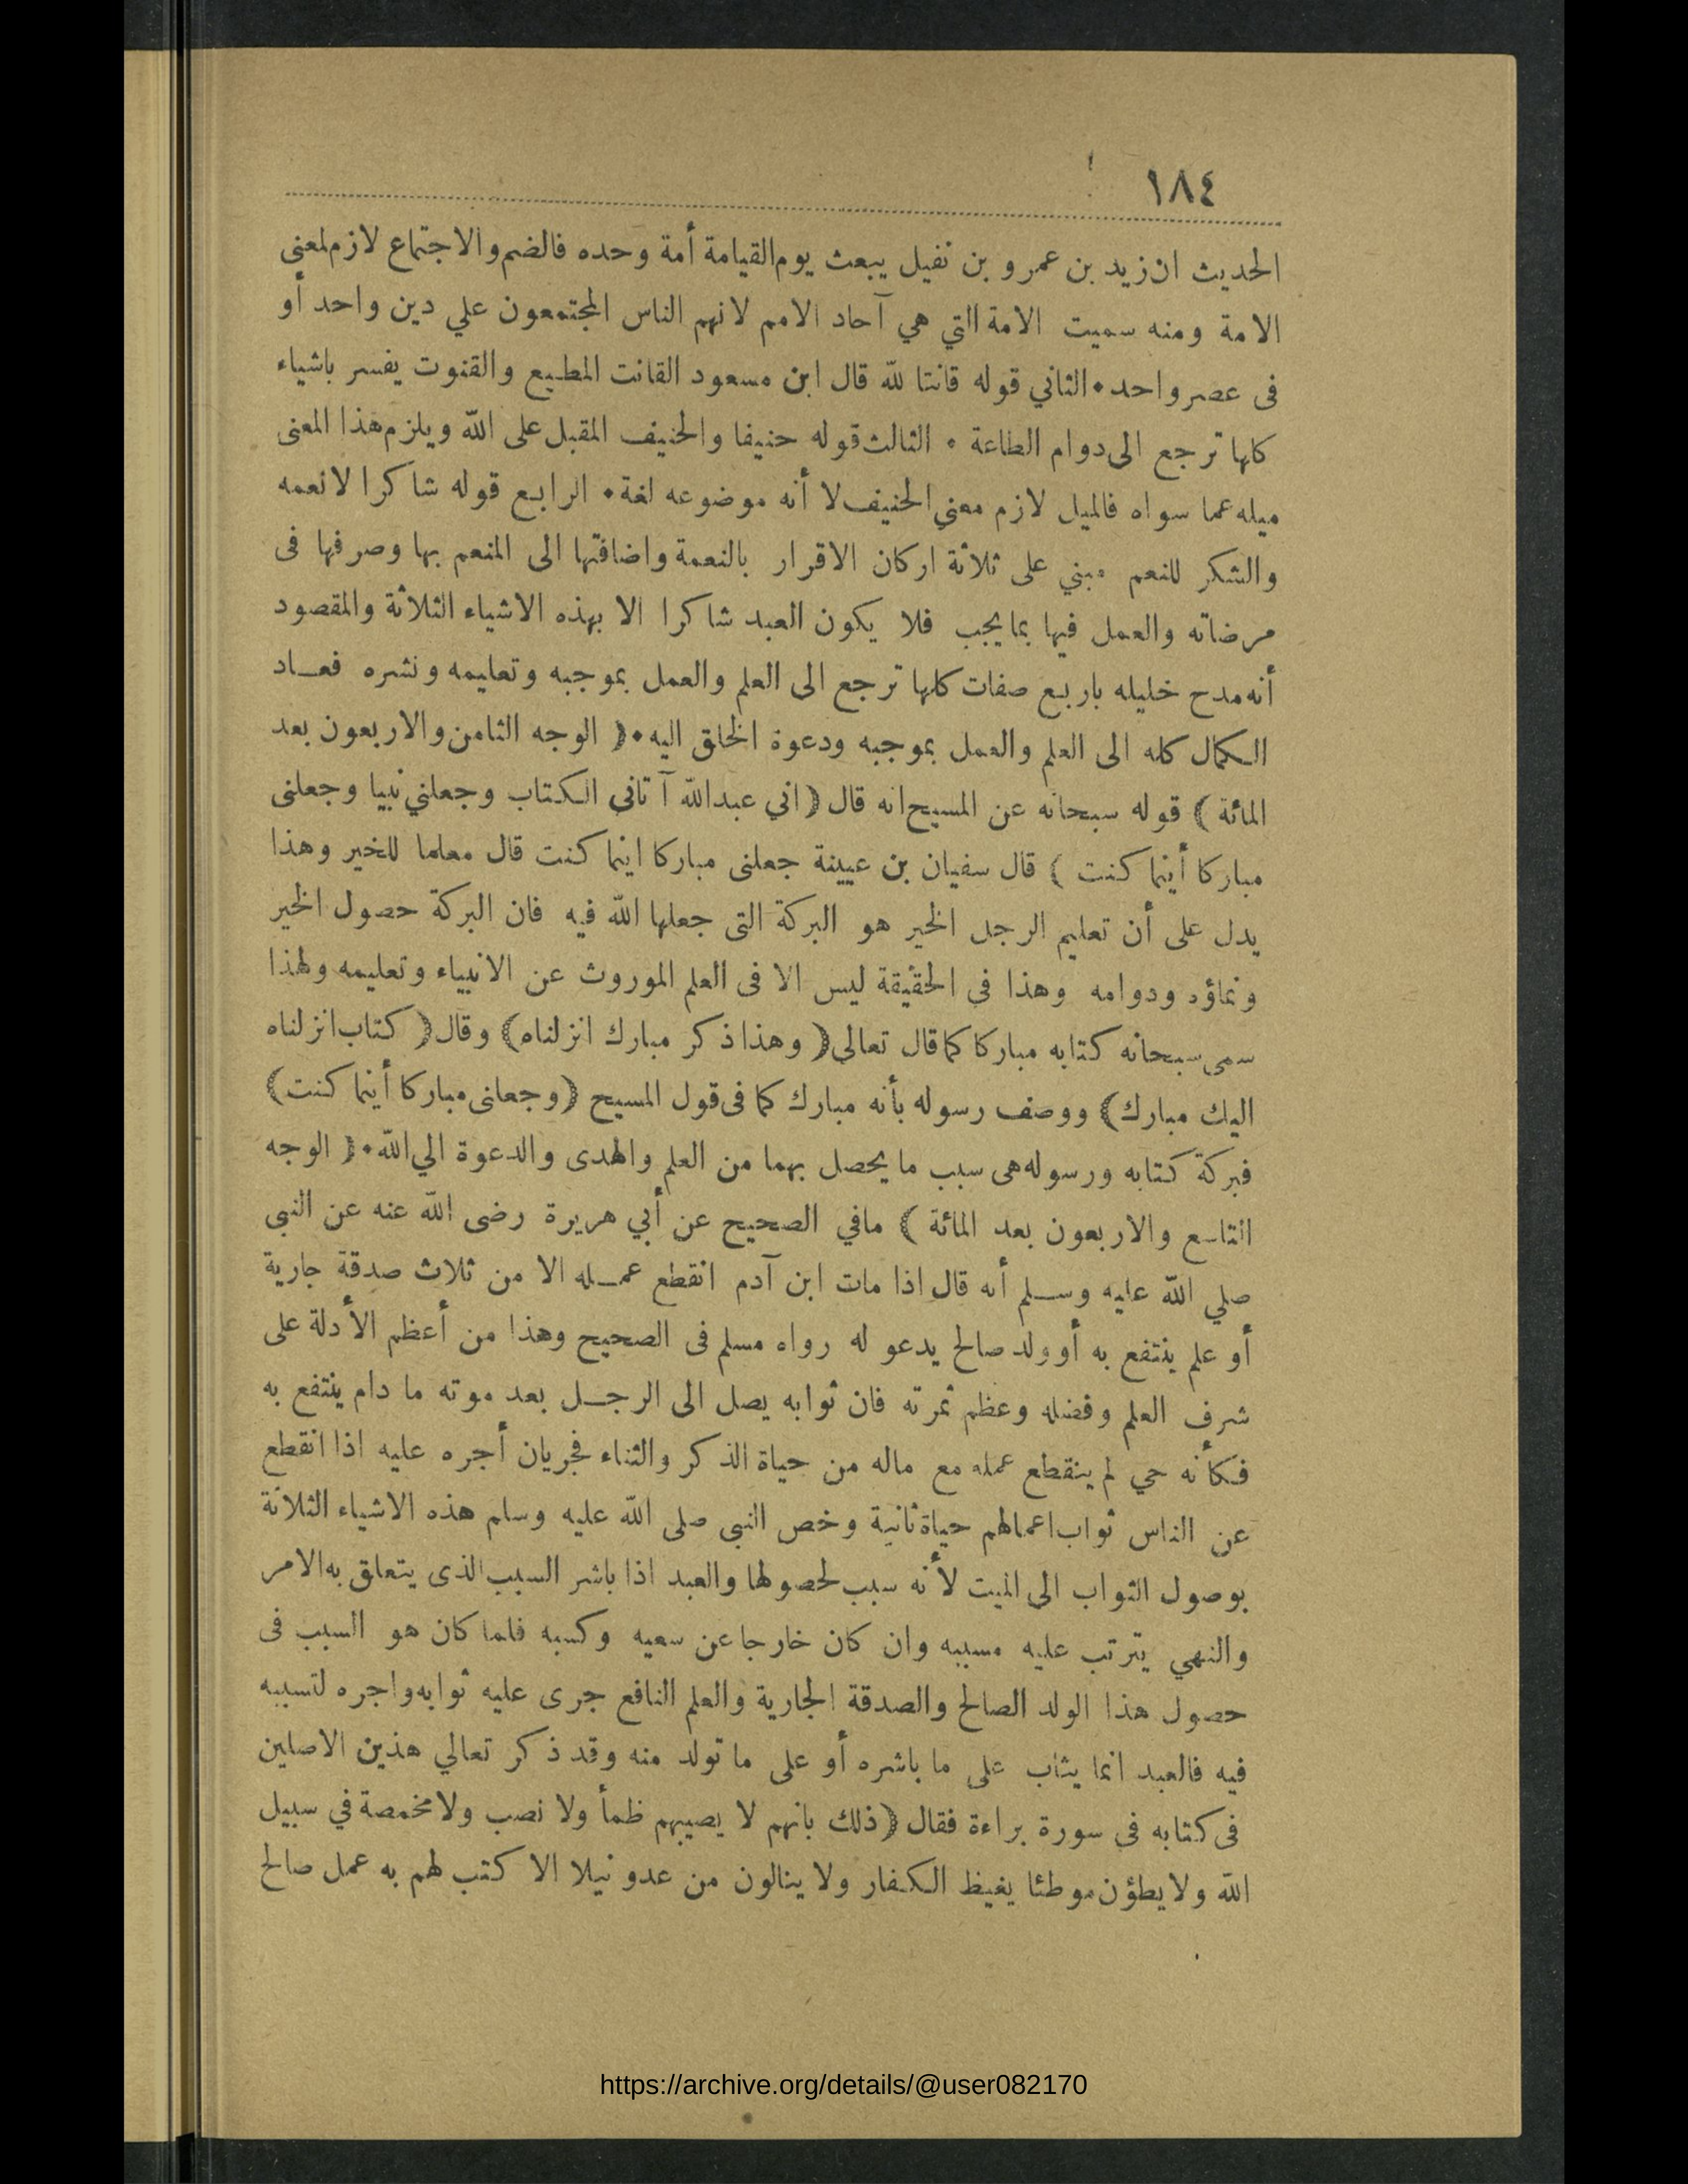 ١٨٤
الحديث ان زيد بن عمرو بن نفيل يبعث يوم القيامة أمة وحده فالضم والاجتماع لازم لمعنى
الامة ومنه سميت الامة التي هي آحاد الامم لانهم الناس المجتمعون علي دين واحد أو
فى عصر واحد • الثاني قوله قانتا لله قال ابن مسعود القانت المطيع والقنوت يفسر باشياء
كلها ترجع الى دوام الطاعة • الثالث قوله حنيفا والحنيف المقبل على الله ويلزم هذا المعنى
ميله عما سواه فالميل لازم معني الحنيف لا أنه موضوعه لغة • الرابع قوله شاكرا لانعمه
والشكر للنعم مبني على ثلاثة اركان الاقرار بالنعمة واضافتها الى المنعم بها وصرفها فى
مرضاته والعمل فيها بما يجب فلا يكون العبد شاكرا الا بهذه الاشياء الثلاثة والمقصود
أنه مدح خليله باربع صفات كلها ترجع الى العلم والعمل بموجبه وتعليمه ونشره فعاد
الكمال كله الى العلم والعمل بموجبه ودعوة الخلق اليه • ( الوجه الثامن والاربعون بعد
المائة ) قوله سبحانه عن المسيح انه قال ( اني عبد الله آتانى الكتاب وجعلني نبيا وجعلنى
مباركا أينما كنت ) قال سفيان بن عيينة جعلنى مباركا اينما كنت قال معلما للخير وهذا
يدل على أن تعليم الرجل الخير هو البركة التى جعلها الله فيه فان البركة حصول الخير
ونماؤه ودوامه وهذا في الحقيقة ليس الا فى العلم الموروث عن الانبياء وتعليمه ولهذا
سمى سبحانه كتابه مباركا كما قال تعالى ( وهذا ذكر مبارك انزلناه ) وقال ( كتاب انزلناه
اليك مبارك ) ووصف رسوله بأنه مبارك كما فى قول المسيح ( وجعلنى مباركا أينما كنت )
فبركة كتابه ورسوله هى سبب ما يحصل بهما من العلم والهدى والدعوة الي الله • ( الوجه
التاسع والاربعون بعد المائة ) مافي الصحيح عن أبي هريرة رضى الله عنه عن النبى
صلي الله عليه وسلم أنه قال اذا مات ابن آدم انقطع عمله الا من ثلاث صدقة جارية
أو علم ينتفع به أو ولد صالح يدعو له رواه مسلم فى الصحيح وهذا من أعظم الأدلة على
شرف العلم وفضله وعظم ثمرته فان ثوابه يصل الى الرجل بعد موته ما دام ينتفع به
فكأنه حي لم ينقطع عمله مع ماله من حياة الذكر والثناء فجريان أجره عليه اذا انقطع
عن الناس ثواب اعمالهم حياة ثانية وخص النبى صلى الله عليه وسلم هذه الاشياء الثلاثة
بوصول الثواب الى الميت لأنه سبب لحصولها والعبد اذا باشر السبب الذى يتعلق به الامر
والنهي يترتب عليه مسببه وان كان خارجا عن سعيه وكسبه فلما كان هو السبب فى
حصول هذا الولد الصالح والصدقة الجارية والعلم النافع جرى عليه ثوابه واجره لتسببه
فيه فالعبد انما يثاب على ما باشره أو على ما تولد منه وقد ذكر تعالي هذين الاصلين
فى كتابه فى سورة براءة فقال ( ذلك بانهم لا يصيبهم ظمأ ولا نصب ولا مخمصة في سبيل
الله ولا يطؤن موطئا يغيظ الكفار ولا ينالون من عدو نيلا الا كتب لهم به عمل صالح
https://archive.org/details/@user082170